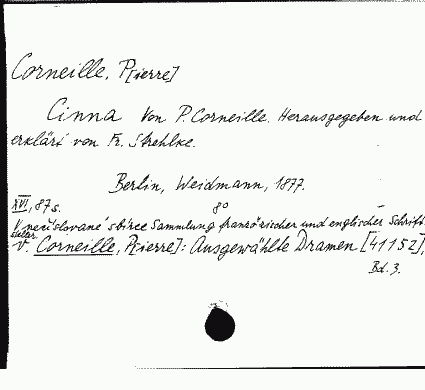 Corneille, P[ierre]
Cinna von P. Corneille. Herausgegeben und
erklärt von Fr. Strehlke.
Berlin, Weidmann, 1877.
XVI, 87 s. 8°
V nečíslované sbírce Sammlung französischer und englischer Schrift
steller.
v. Corneille, P[ierre]: Ausgewählte Dramen [41152],
Bd. 3.